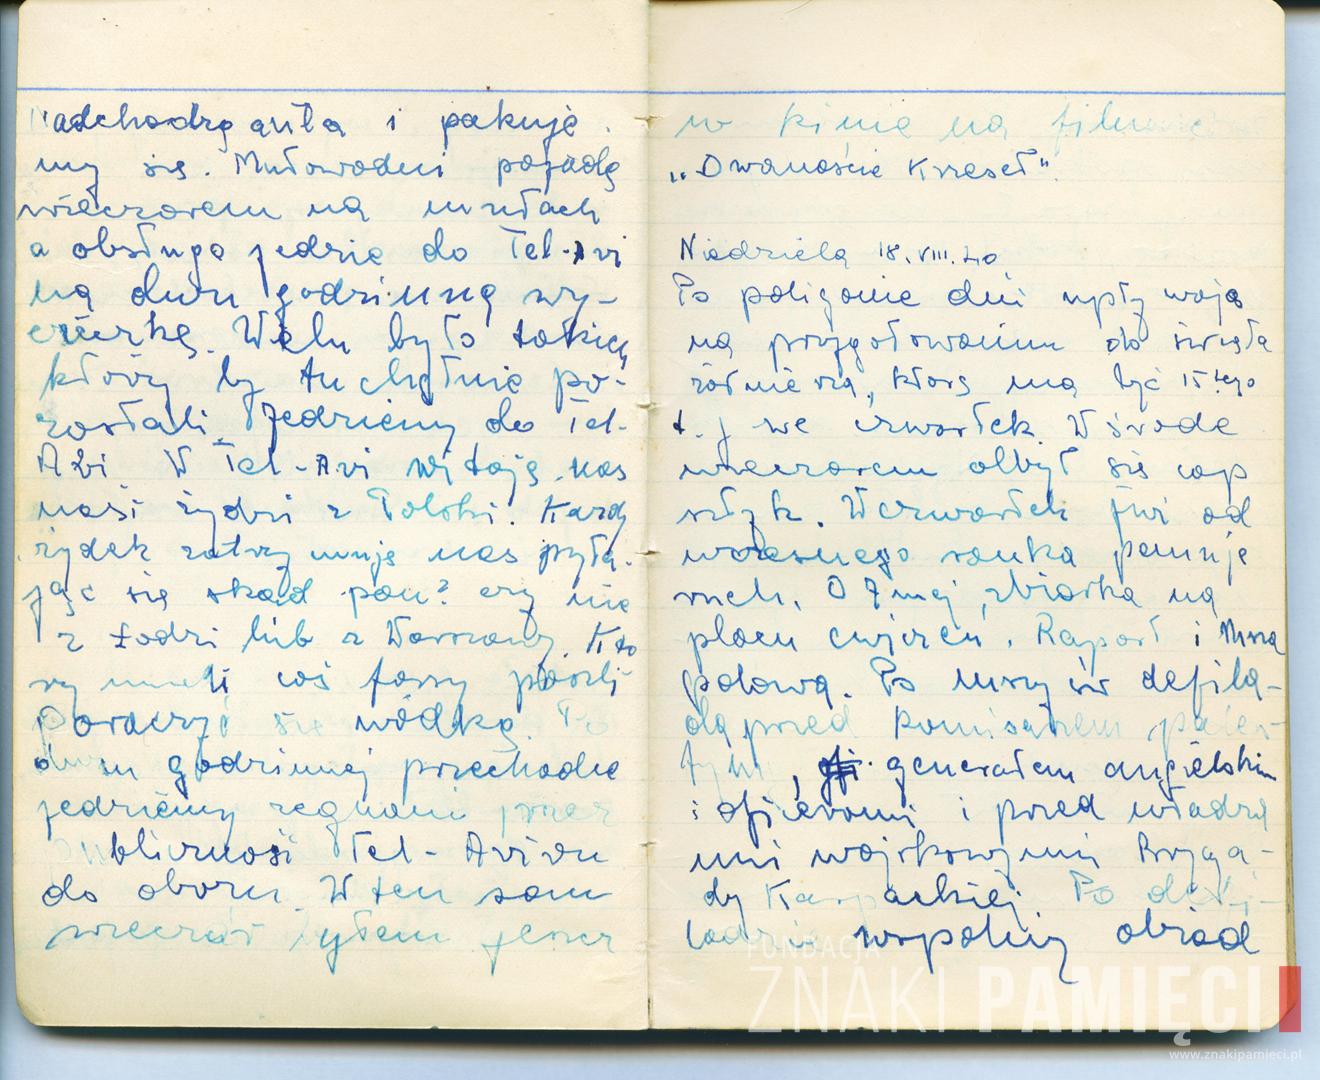 nadchodzą auta i pakuje
my się. Mułowodni pojadą
wieczorem na mułach
a obsługa jedzie do Tel-Avi
na dwu godzinną wy-
cieczkę. Wielu było takich
którzy by tu chętnie po-
zostali. Jedziemy do Tel-
Avi W Tel-Avi witają nas
nasi żydzi z Polski. Każdy
żydek zatrzymuje nas pyta-
jąc się skąd pan? czy nie
z Łodzi lub z Warszawy. Któ
rzy mieli coś forsy poszli
Poraczyć się wódką. Po
dwu godzinnej przechadce
jedziemy żegnani przez
publiczność Tel-Avivu
do obozu. W ten sam
wieczór byłem jeszcz
w kinie na filmie
„Dwanaście Krzeseł".
Niedziela 18.VIII.40
Po poligonie dni upływają
na przygotowaniu do święta
żołnierza, które ma być 15tego
t.j we czwartek. W środę
wieczorem odbył się cap
sztyk. W czwartek już od
wczesnego ranka panuje
ruch. O 7mej zbiórka na
placu ćwiczeń. Raport i Msza
polowa. Po mszy św defila-
da przed komisarzem pales-
tyny, generałem angielskim
i oficerami i przed władza
mi wojskowymi Bryga-
dy Karpackiej. Po defi-
ladzie wspólny obiad
FUNDACJA
ZNAKI PAMIĘCI
www.znakipamieci.pl